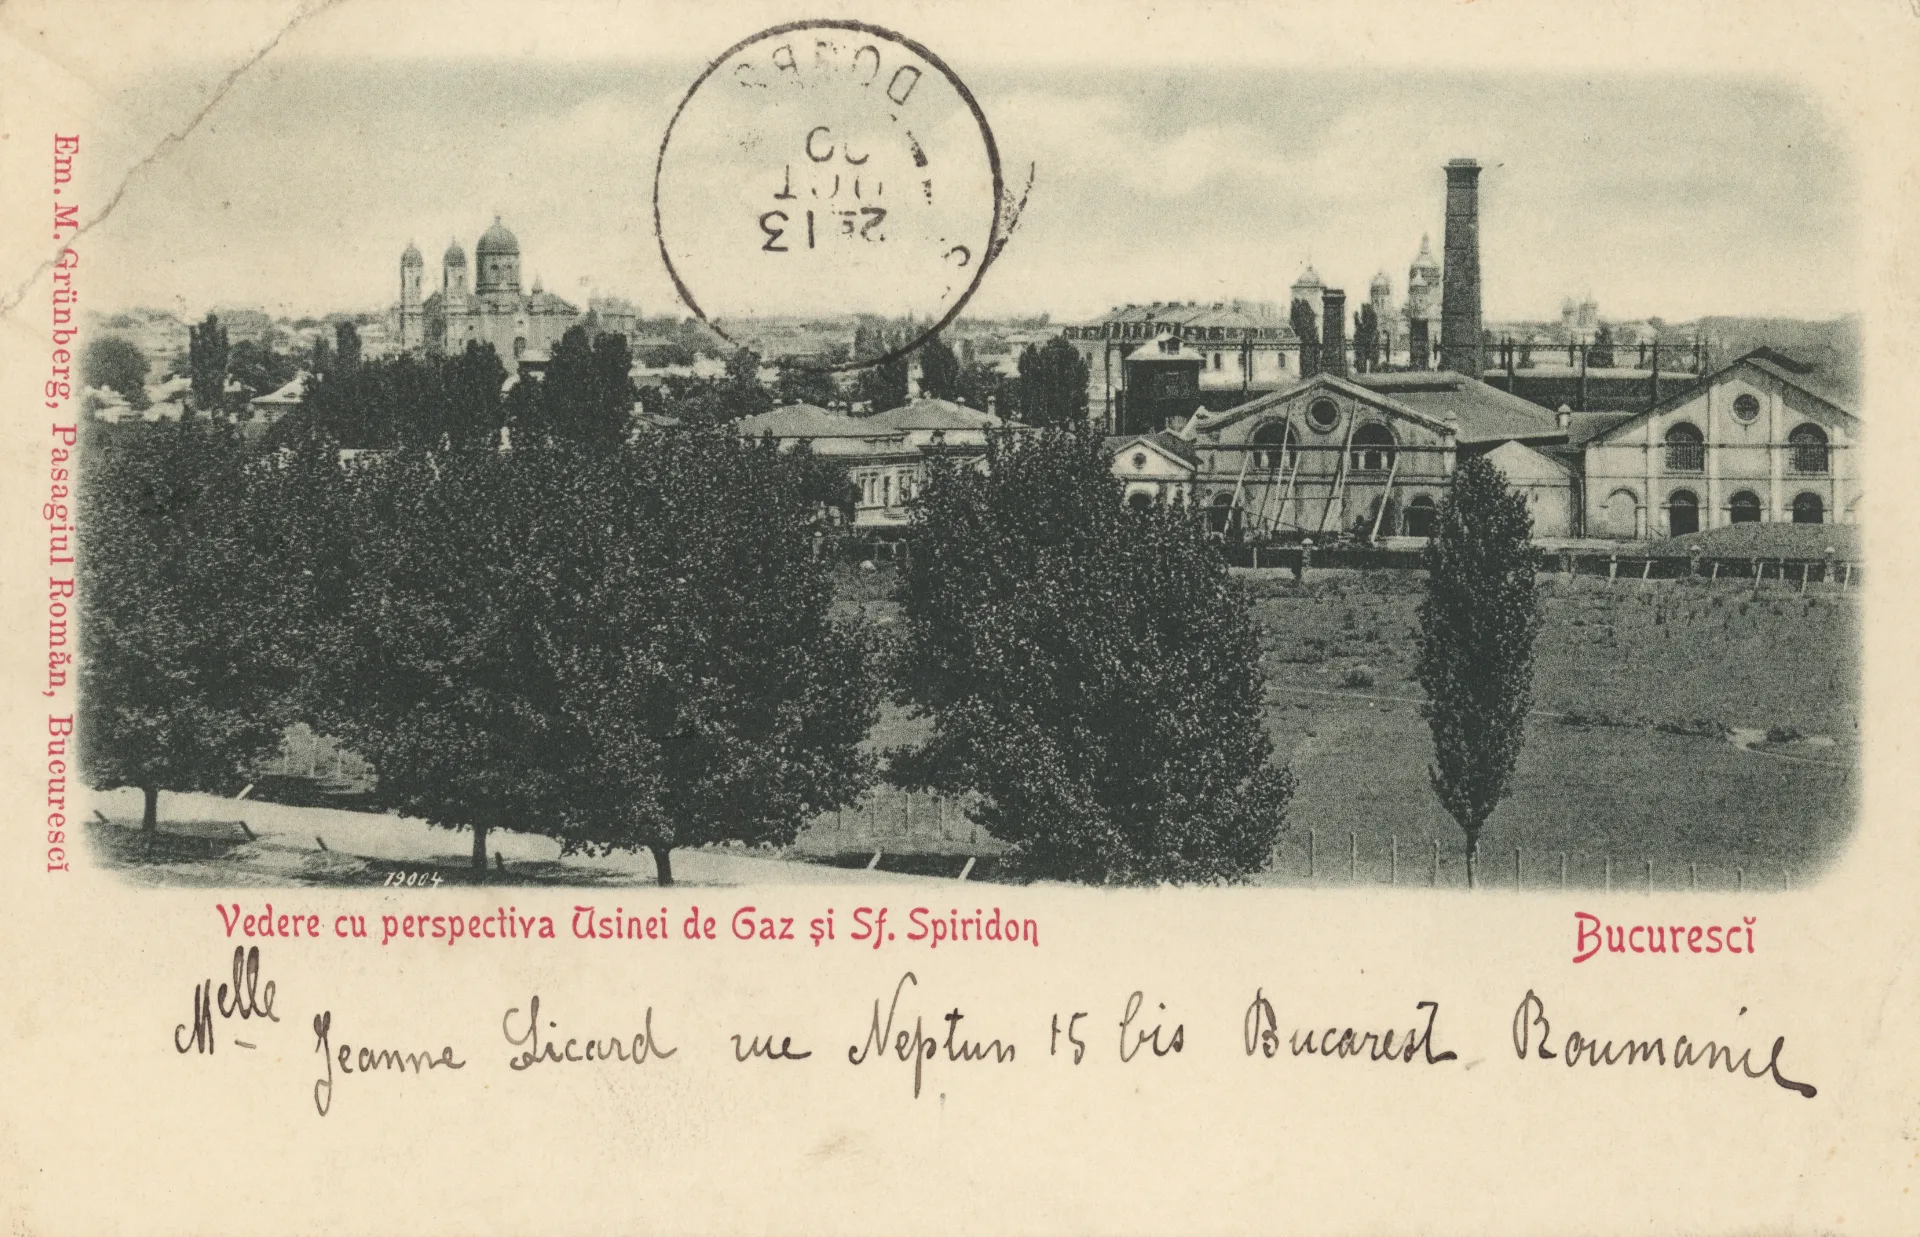 Em. M. Grünberg, Pasagiul Romăn, Bucurescĭ
13
OCT
00
19004
Vedere cu perspectiva Usinei de Gaz și Sf. Spiridon
Bucurescĭ
Melle Jeanne Licard rue Neptun 15 bis Bucarest Roumanie